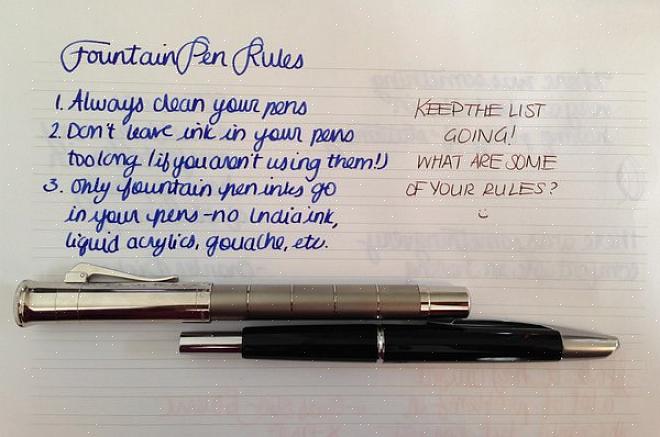 Fountain Pen Rules
1. Always clean your pens
2. Don't leave ink in your pens
too long (if you aren't using them!)
3. Only fountain pen inks go
in your pens - no India ink,
liquid acrylics, gouache, etc.
KEEP THE LIST
GOING!
WHAT ARE SOME
OF YOUR RULES?